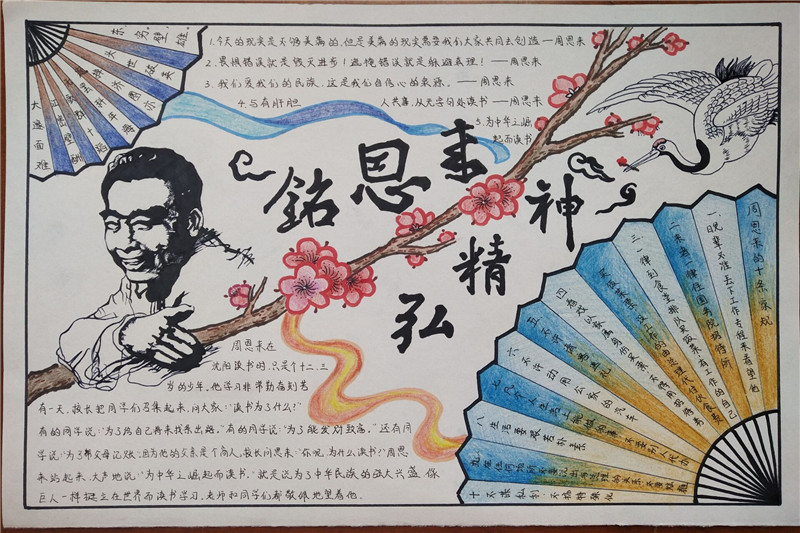 1.今天的现实是不够美满的,但是美满的现实需要我们大家共同去创造—周恩来
2.承认错误就是错误进步！避掩错误就是躲避真理！—周恩来
3.我们爱我们的民族,这是我们自信心的来源。—周恩来
4.与有肝胆人共事,从无字句处读书—周恩来
5.为中华之崛起而读书
大江歌罢掉头东,
邃密群科济世穷。
面壁十年图破壁,
难酬蹈海亦英雄。
銘恩来
弘精神
周恩来在
沈阳读书时,只是个十二、三
岁的少年,他学习非常勤奋刻苦
有一天,校长把同学们召集起来,问大家:"读书为了什么!"
有的同学说:"为了给自己将来找条出路。"有的同学说:"为了能发财致富。"还有同
学说:"为了帮父母记账。"因为他的父亲是个商人,校长问恩来:"你呢,为什么读书?"周恩
来站起来,大声地说:"为中华之崛起而读书。"就是说为了中华民族的强大兴盛,像
巨人一样挺立在世界而读书学习,老师和同学们都敬佩地望着他。
周恩来的十条家规
一、晚辈不准丢下工作专程来看望他
二、来者一律住国务院招待所
三、一律到食堂排队买饭菜,有工作的自己
买饭菜票,没工作的由总理代付伙食费
四、看戏以家属身份买票,不得用招待券
五、不许请客送礼
六、不许动用公家的汽车
七、凡个人生活上能做的事,不要别人代办
八、生活要艰苦朴素
九、在任何场合不要说出与总理的关系,不要炫耀
十、不谋私利,不搞特殊化